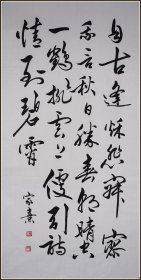 自古逢秋悲寂寥
我言秋日勝春朝晴空
一鶴排雲上便引詩
情到碧霄